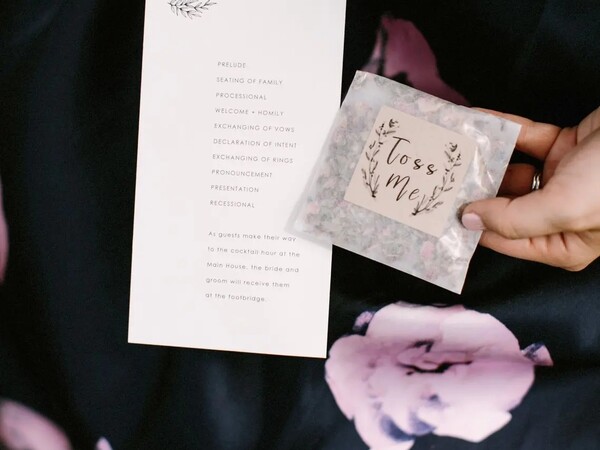 PRELUDE
SEATING OF FAMILY
PROCESSIONAL
WELCOME + HOMILY
EXCHANGING OF VOWS
DECLARATION OF INTENT
EXCHANGING OF RINGS
PRONOUNCEMENT
PRESENTATION
RECESSIONAL
As guests make their way
to the cocktail hour at the
Main House, the bride and
groom will receive them
at the footbridge.
Toss
Me